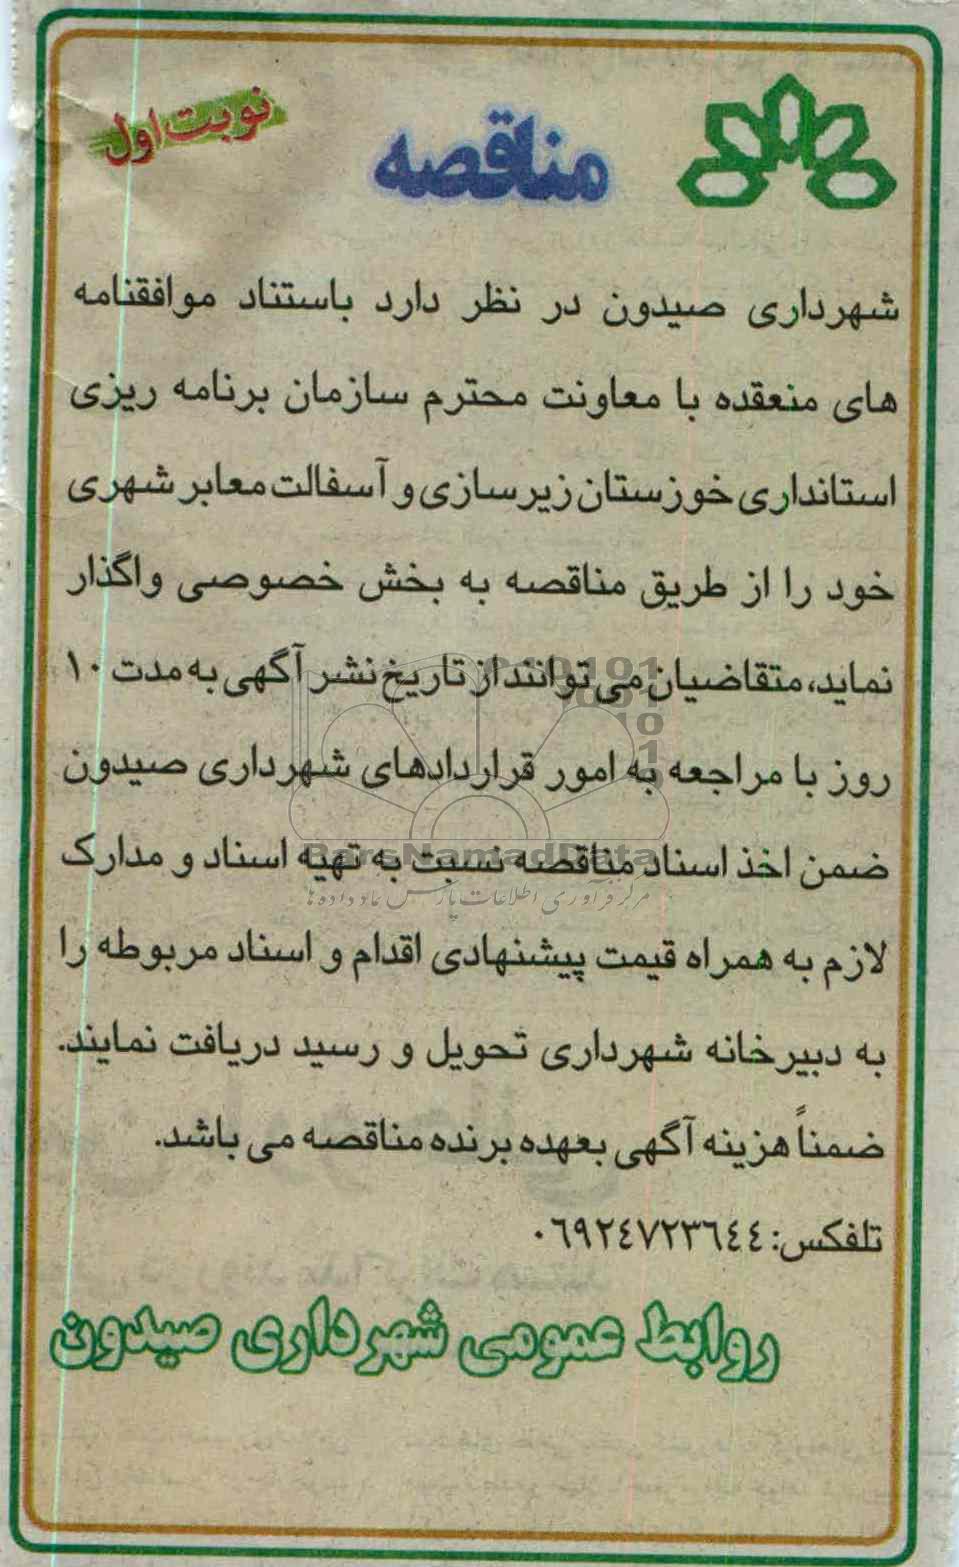 نوبت اول
مناقصه
شهرداری صیدون در نظر دارد باستناد موافقنامه
های منعقده با معاونت محترم سازمان برنامه ریزی
استانداری خوزستان زیرسازی و آسفالت معابر شهری
خود را از طریق مناقصه به بخش خصوصی واگذار
نماید، متقاضیان می توانند از تاریخ نشر آگهی به مدت ۱۰
روز با مراجعه به امور قراردادهای شهرداری صیدون
ضمن اخذ اسناد مناقصه نسبت به تهیه اسناد و مدارک
لازم به همراه قیمت پیشنهادی اقدام و اسناد مربوطه را
به دبیرخانه شهرداری تحویل و رسید دریافت نمایند.
ضمناً هزینه آگهی بعهده برنده مناقصه می باشد.
تلفکس: ۰۶۹۲٤۷۲۳۶٤٤
روابط عمومی شهرداری صیدون
ParsNamadData
مرکز فرآوری اطلاعات پارس نماد داده ها